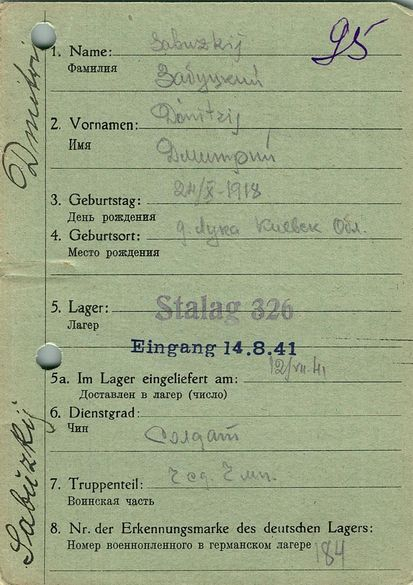 95
1. Name: Sabuzkij
Фамилия Забуцкий
2. Vornamen: Dmitrij
Имя Дмитрий
3. Geburtstag: 24/X-1918
День рождения
4. Geburtsort: д. Лука Киевск Обл.
Место рождения
5. Lager: Stalag 326
Лагер
Eingang 14.8.41
5a. Im Lager eingeliefert am: 12/VII.41
Доставлен в лагер (число)
6. Dienstgrad:
Чин Солдат
7. Truppenteil:
Воинская часть
8. Nr. der Erkennungsmarke des deutschen Lagers:
Номер военнопленного в германском лагере 184
Sabuzkij Dmitri